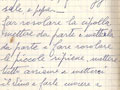 sale e pepe.
Far rosolare la cipolla,
metterla da parte e metterla
da parte e fare rosolare
le piccole ripiene, mettere
tutto assieme e metterci
il vino e farle cuocere a